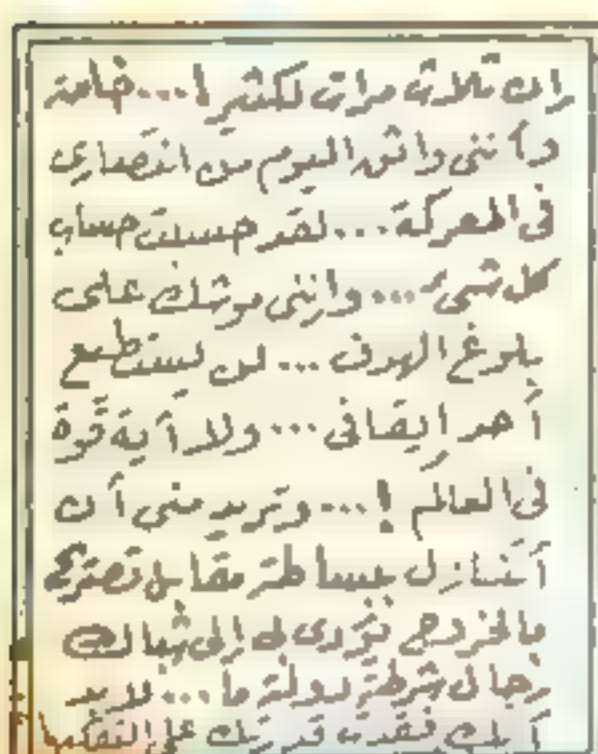 إن ثلاث مرات لكثير !... خاصة
وأننى واثق اليوم من انتصارى
فى المعركة ... لقد حسبت حساب
كل شىء ... وإننى موشك على
بلوغ الهدف ... لن يستطيع
أحد إيقافى ... ولا أية قوة
فى العالم !... وتريد منى أن
أتنازل ببساطة مقابل تصريح
بالخروج تؤدى بى إلى شباك
رجال شرطة دولة ما ... لابد
أنك فقدت قدرتك على التفكير